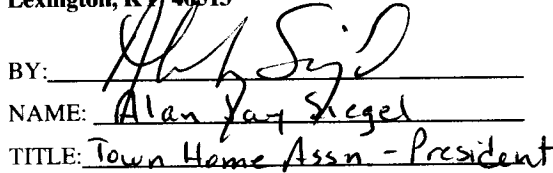 Lexington, KY 40513
BY:
NAME: Alan Jay Siegel
TITLE: Town Home Assn - President